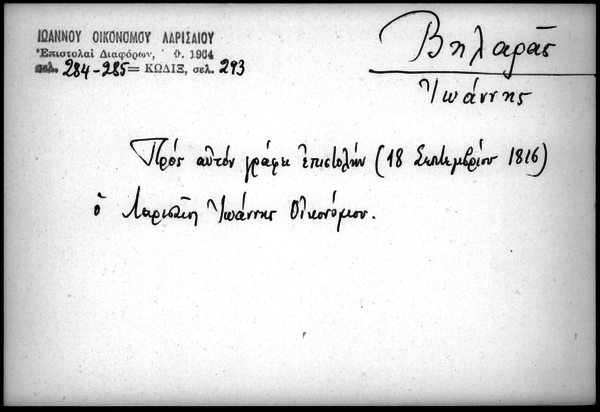 ΙΩΑΝΝΟΥ ΟΙΚΟΝΟΜΟΥ ΛΑΡΙΣΑΙΟΥ
Ἐπιστολαὶ Διαφόρων, Ἀθ. 1964
σελ. 284-285 = ΚΩΔΙΞ, σελ. 293
Βηλαρᾶς
Ἰωάννης
Πρός αὐτόν γράφει ἐπιστολήν (18 Σεπτεμβρίου 1816)
ὁ Λαρισαῖος Ἰωάννης Οἰκονόμου.